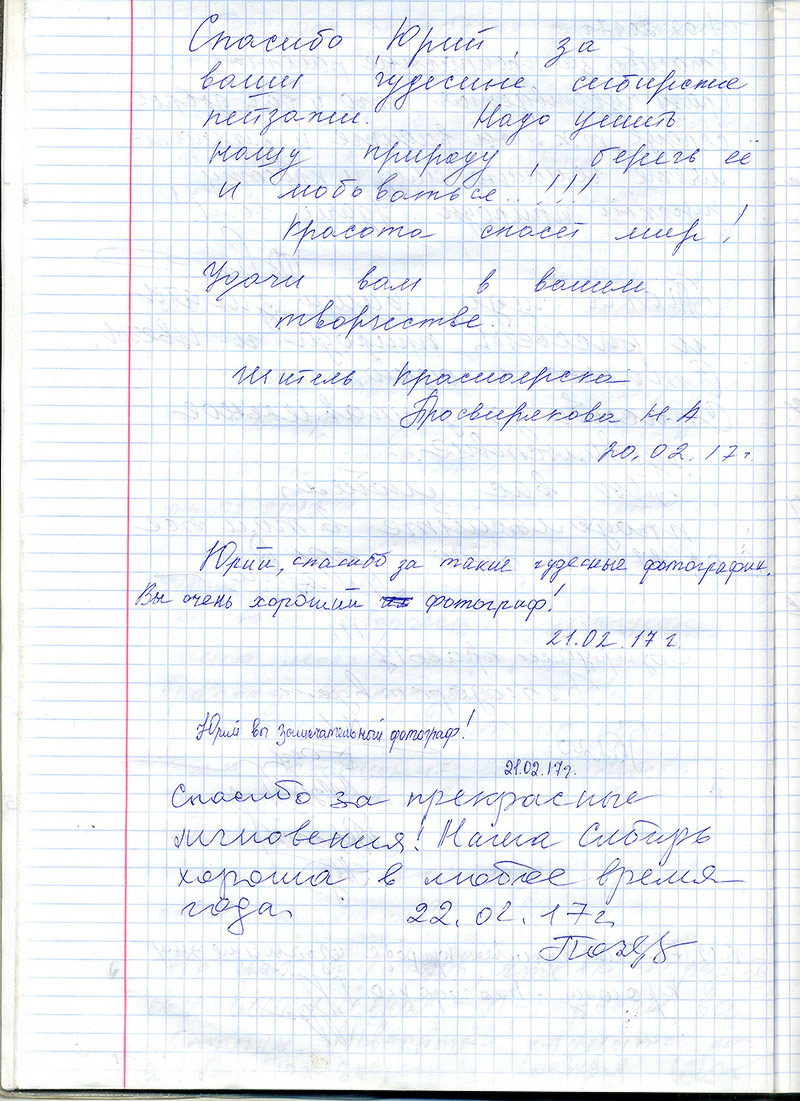 Спасибо Юрий, за
ваши чудесные сибирские
пейзажи. Надо ценить
нашу природу, беречь её
и любоваться..!!!
Красота спасёт мир!
Удачи вам в вашем
творчестве.
Житель Красноярска
Просвирякова Н.А
20.02.17г.
Юрий, спасибо за такие чудесные фотографии.
Вы очень хороший фотограф!
21.02.17г.
Юрий вы замечательный фотограф!
21.02.17г.
Спасибо за прекрасные
мгновения! Наша Сибирь
хороша в любое время
года. 22.02.17г.